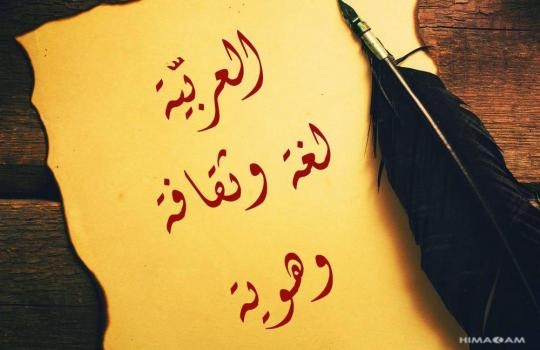 العربيّة
لغة وثقافة
وهوية